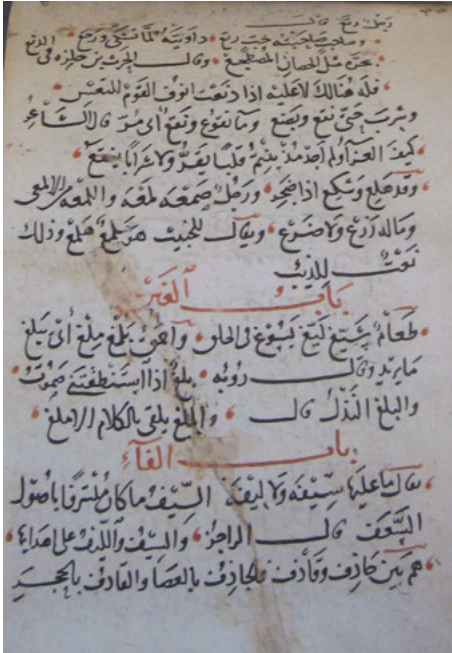 وصاحب صاحبته خب دع داويته لما تشكى ووجع
بجره مثل الحصان المضطجع وقال الحرث بن حلزة في
فله هنالك لا عليه اذا دنعت انوف القوم للتعس
وشرب حتى نقع وبضع وما نقوع ونقع اى مر قال الشاعر
كيف العزا ولم اجد مذ بنتم قلبا يقر ولا شرابا ينقع
وقد هلع وشكع اذا ضجر ورجل صمعه لمعه واللمعه الالمعى
وماله زرع ولا ضرع ويقال للخبيث هملع وذلك
نعت للذيب
باب الغين
طعام سيغ ليغ يسوغ فى الحلق واحمق بلغ ملغ اى يبلغ
ما يريد وقال رؤبه بلغ اذا استنطقتنى صموت
والبلغ النذل قال والملغ يلقى بالكلام الاملغ
باب الفاء
يقال ما عليها سيفه ولا ليفه السيف ما كان ملتزقا باصول
السعف قال الراجز والسيف والليف على اهدابها
هم بين حاذف وقاذف فالحاذف بالعصا والقاذف بالحجر